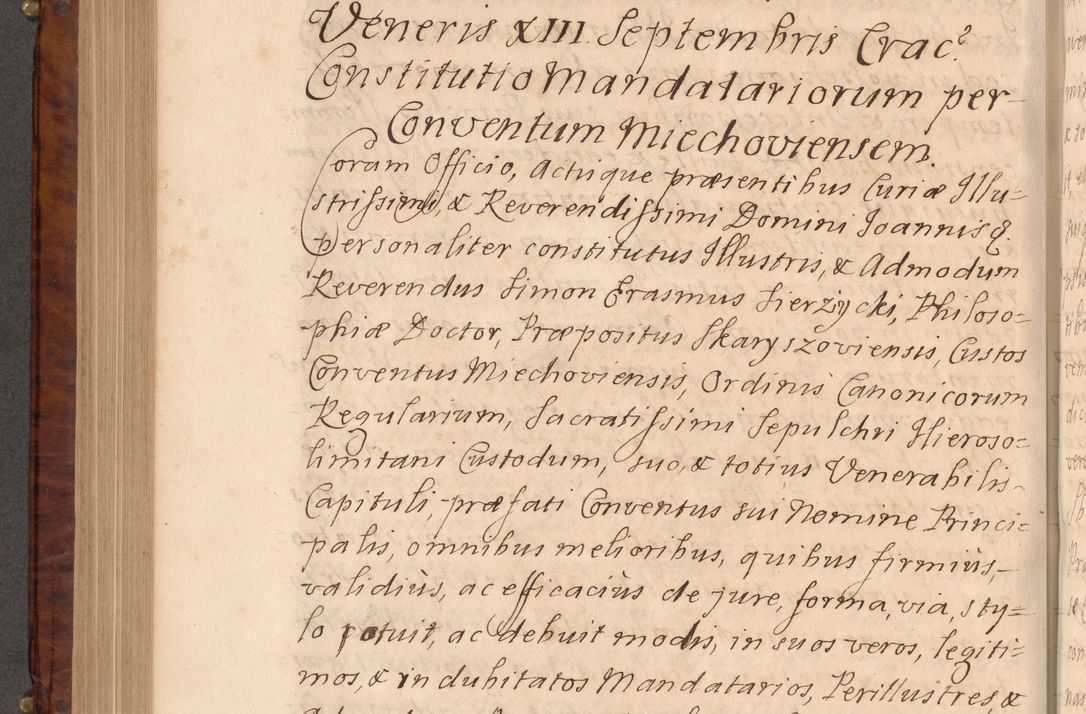 Veneris XIII Septembris Crac?
Constitutio Mandatariorum per
Conventum Miechoviensem.
Coram Officio, Actisque præsentibus Curiæ Illu=
strissimi, & Reverendissimi Domini Ioannis &.
Personaliter constitutus Illustris, & Admodum
Reverendus Simon Erasmus Sierżycki, Philoso=
phiæ Doctor, Præpositus Skaryszoviensis, Custos
Conventus Miechoviensis, Ordinis Canonicorum
Regularium, Sacratissimi Sepulchri Hieroso=
limitani Custodum, suo, & totius Venerabilis
Capituli, præfati Conventus sui Nomine Princi=
palis, omnibus melioribus, quibus firmiùs,
validiùs, ac efficaciùs de jure, forma, via, sty=
lo potuit, ac debuit modis, in suos veros, legiti=
mos, & indubitatos Mandatarios, Perillustres, &